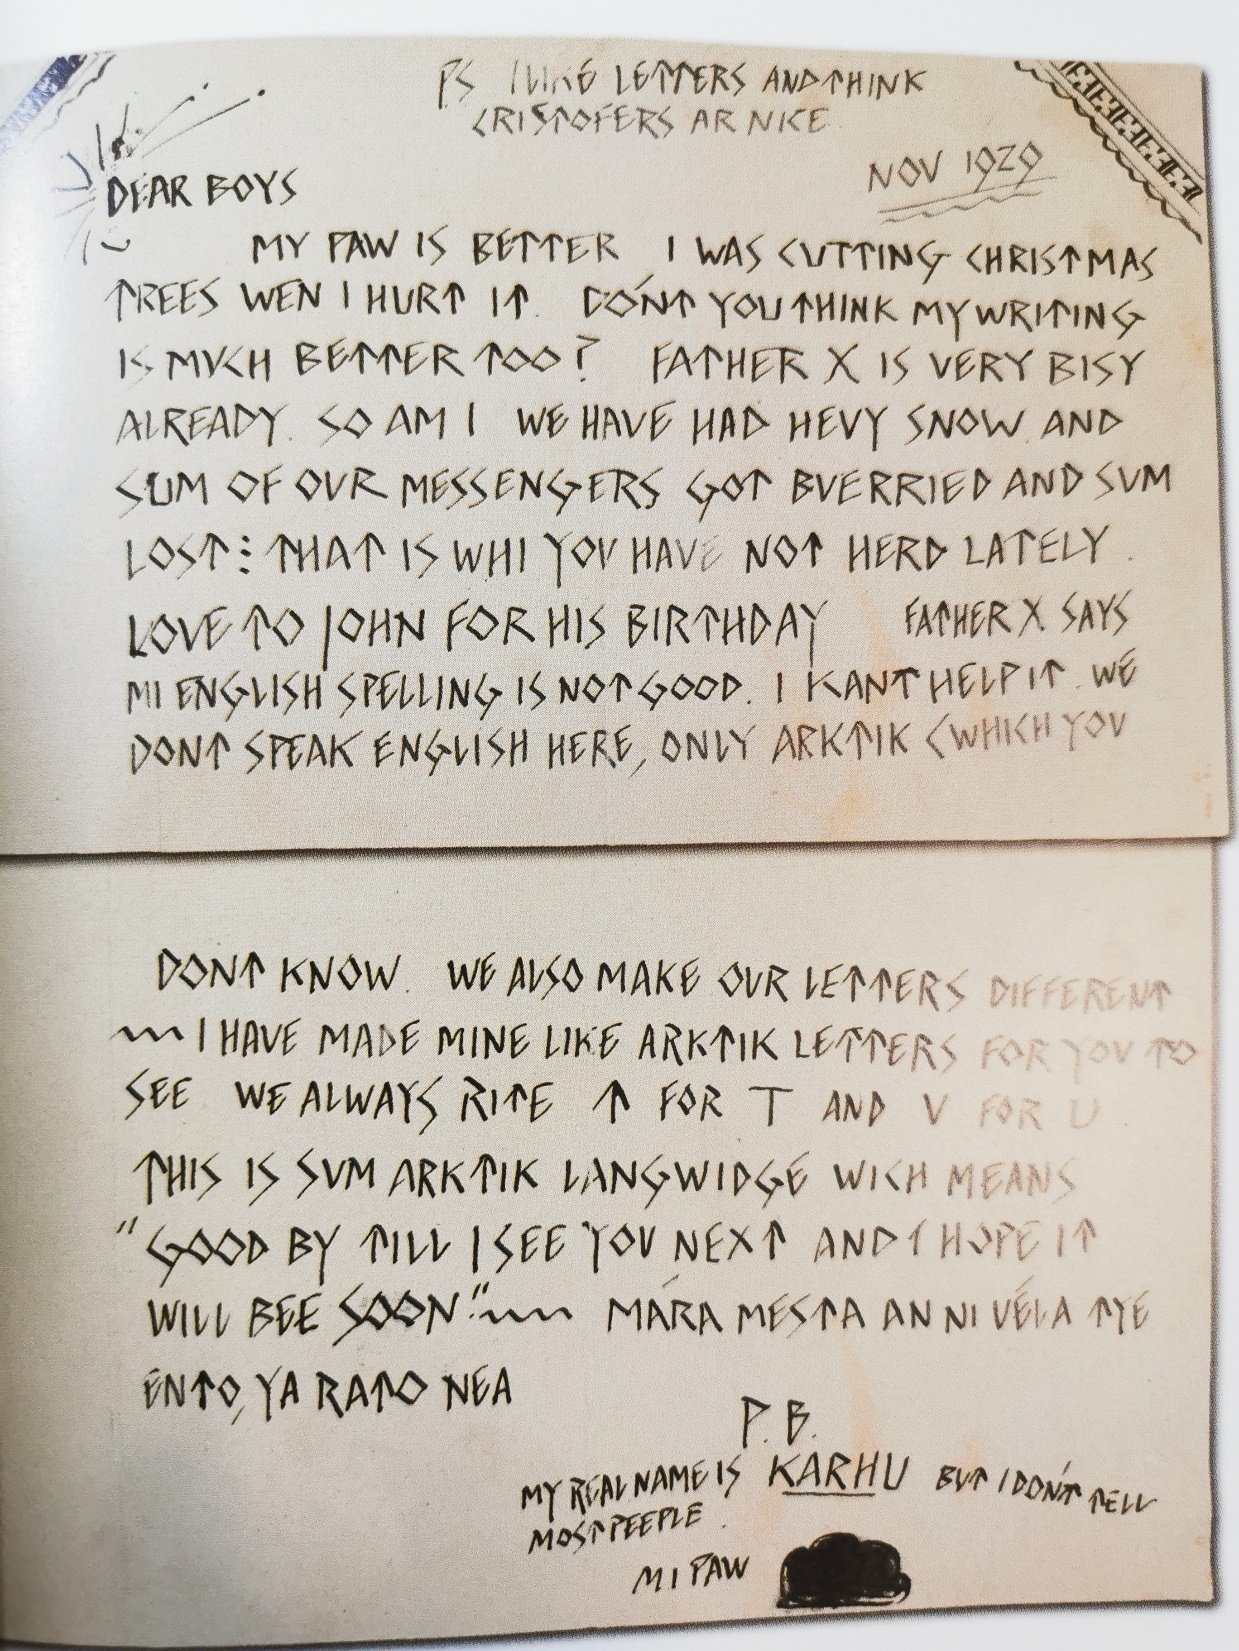 PS I LIKE LETTERS AND THINK
CRISTOFERS AR NICE
NOV 1929
DEAR BOYS
MY PAW IS BETTER I WAS CUTTING CHRISTMAS
TREES WEN I HURT IT. DO'NT YOU THINK MY WRITING
IS MVCH BETTER TOO? FATHER X IS VERY BISY
ALREADY. SO AM I WE HAVE HAD HEVY SNOW AND
SUM OF OVR MESSENGERS GOT BVERRIED AND SVM
LOST⋮ THAT IS WHI YOV HAVE NOT HERD LATELY.
LOVE TO JOHN FOR HIS BIRTHDAY FATHER X SAYS
MI ENGLISH SPELLING IS NOT GOOD. I KANT HELP IT. WE
DONT SPEAK ENGLISH HERE, ONLY ARKTIK (WHICH YOV
DONT KNOW. WE ALSO MAKE OVR LETTERS DIFFERENT
~~ I HAVE MADE MINE LIKE ARKTIK LETTERS FOR YOV TO
SEE WE ALWAYS RITE ↑ FOR T AND V FOR U.
THIS IS SVM ARKTIK LANGWIDGE WICH MEANS
"GOOD BY TILL I SEE YOV NEXT AND I HOPE IT
WILL BEE SOON." ~~ MÁRA MESTA AN NI VÉLA TYE
ENTO, YA RATO NEA
P.B.
MY REAL NAME IS KARHU BUT I DON'T TELL
MOST PEEPLE.
MI PAW